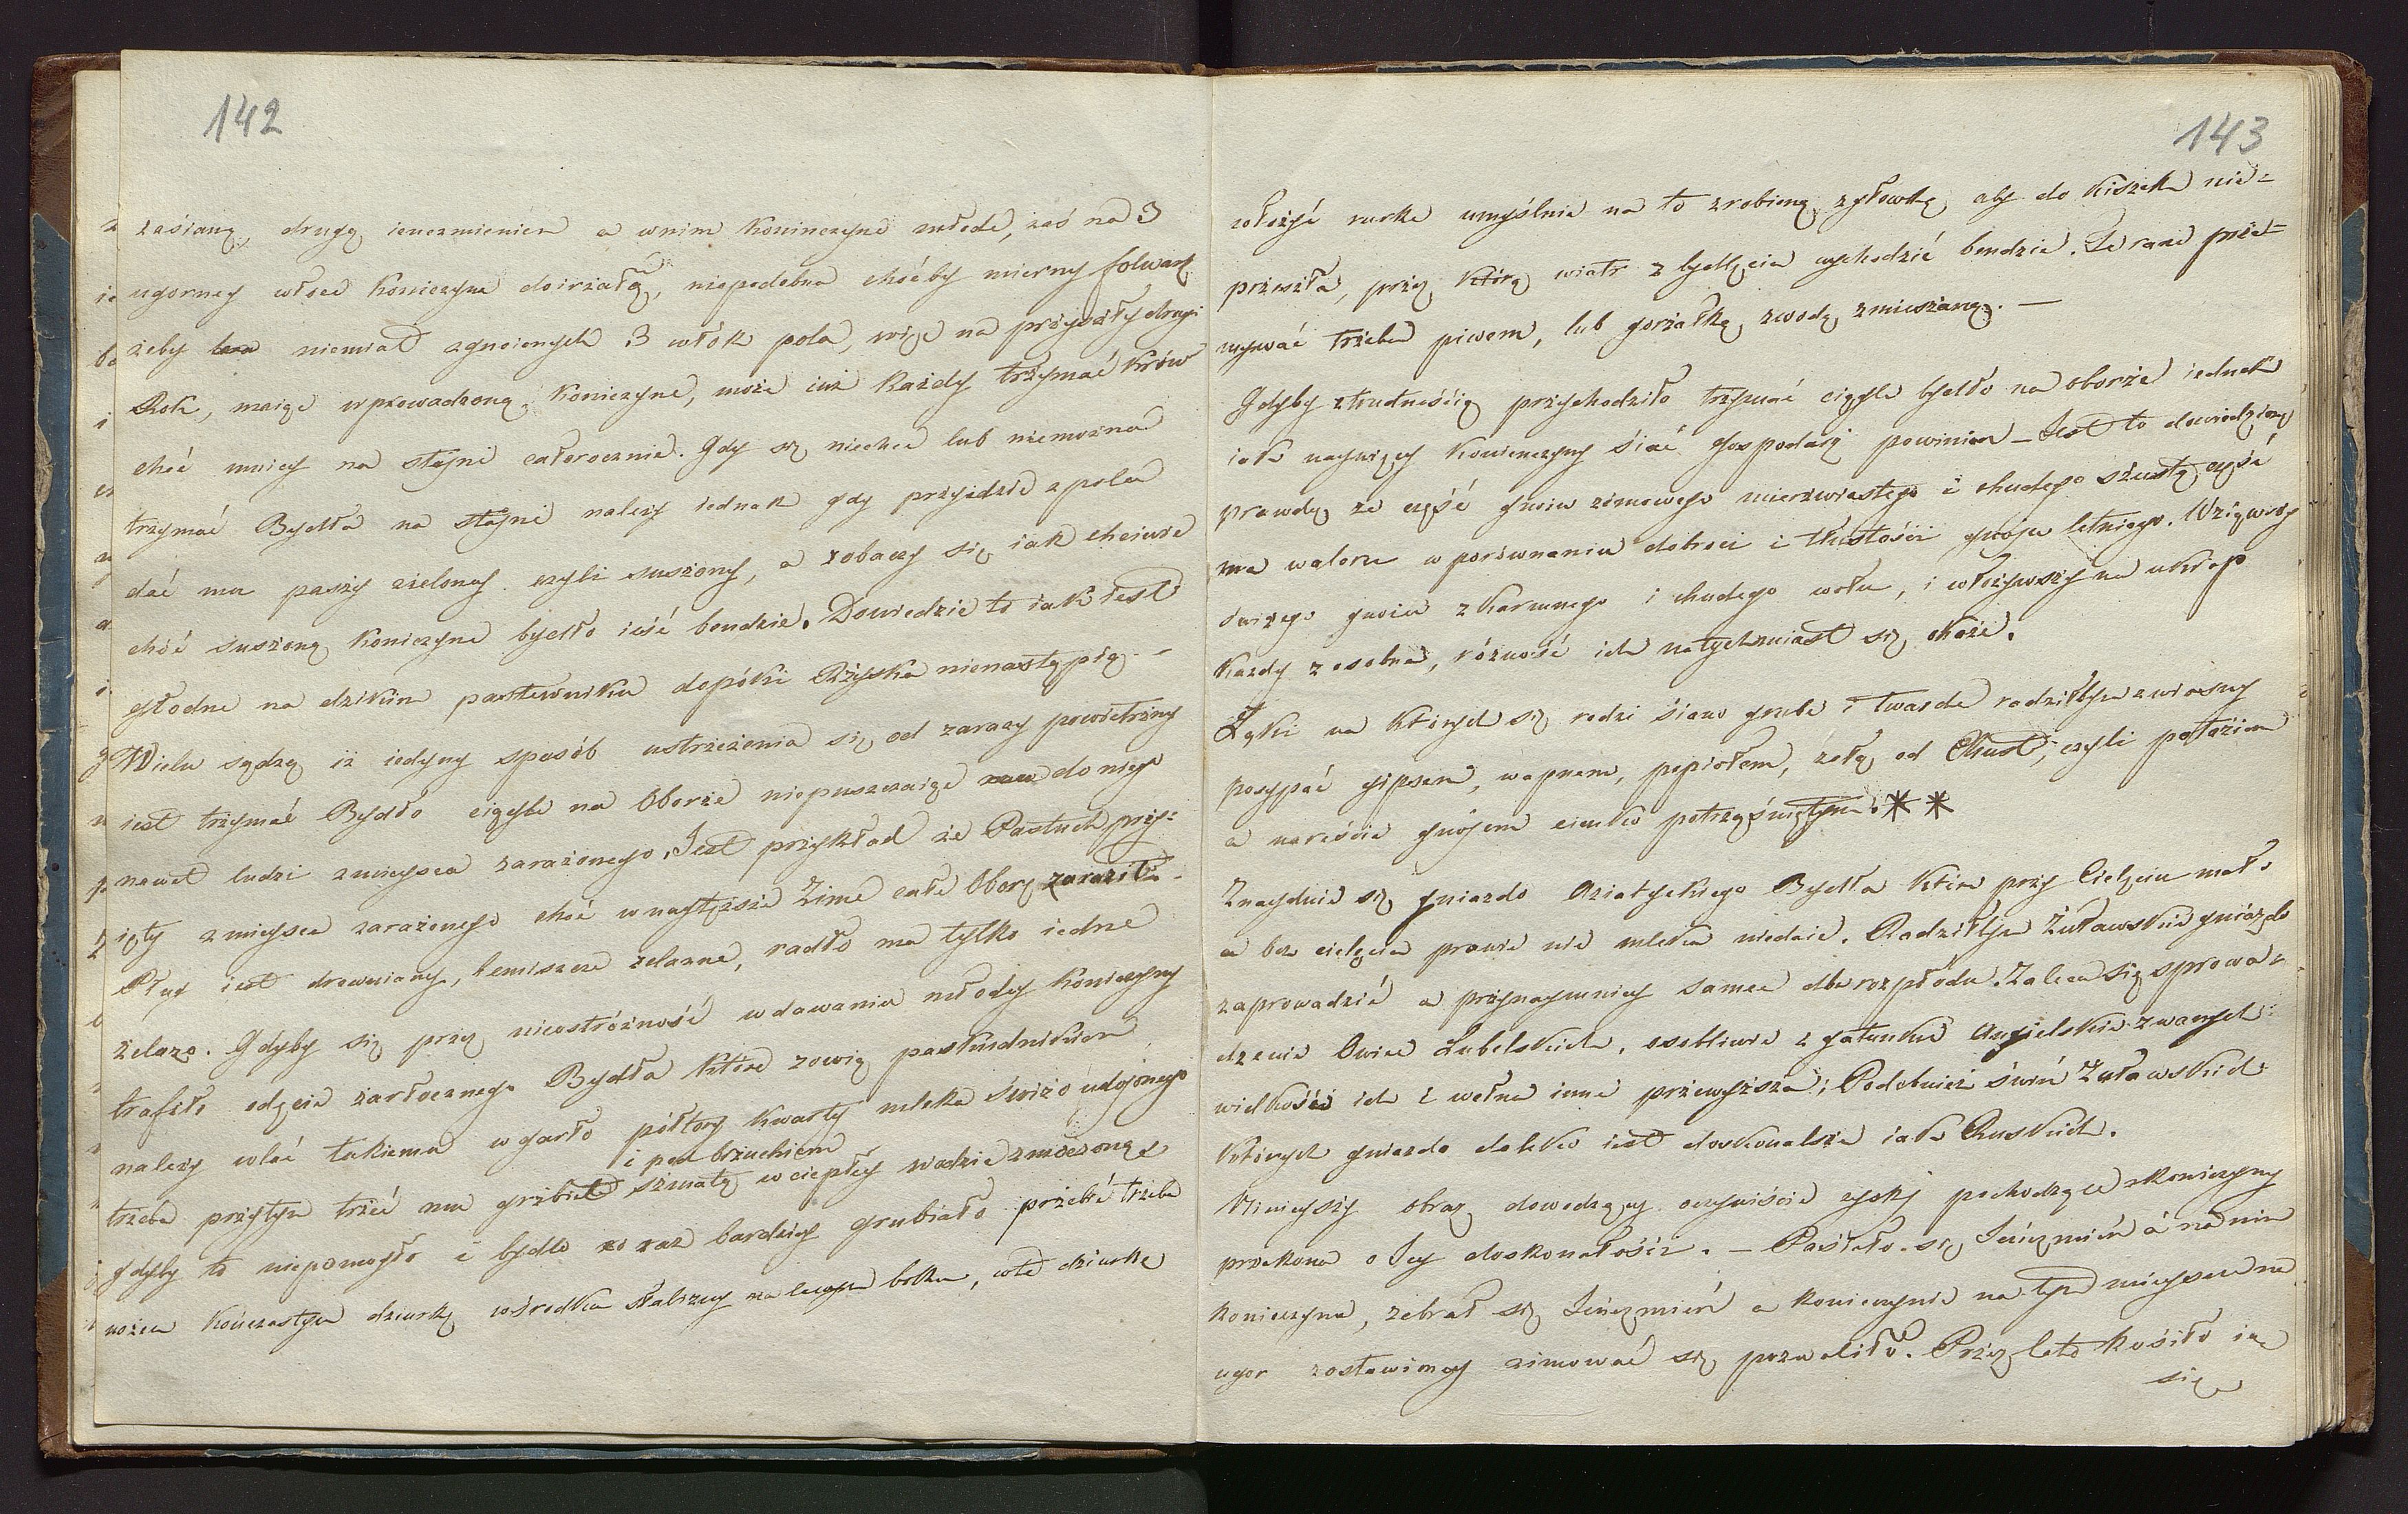 142
zasianą, drugą ienczmieniem a wnim Koninczyne młode, zaś na 3
ugorney włoce Koniczyne doirzałą, niepodobna choćby mierny folwark
żeby niemiał zgnoionych 3 włók pola, więc na przyszły drugi
Rok, maiąc wprowadzoną Koniczyne, może iuż Każdy trzymać Krów
choć mniey na stayni całorocznie. Gdy się niechce lub niemożna
trzymać Bydła na stayni należy iednak gdy przyidzie z pola
dać mu paszy zieloney czyli suszoney, a zobaczy się iak chciwie
choć suszoną Koniczyne bydło ieść bendzie. Dowiedzie to iak iest
głodne na dzikim pastewniku dopóki Rżyska nienastąpią. -
Wielu sądzą iż iedyny sposób ustrzeżenia się od zarazy powietrzney
iest trzymać Bydło ciągle na Oborze niepuszczaiąc do niego
nawet ludzi zmieysca zarażonego. Jest przykład że Pastuch przy-
ięty zmieysca zarażonego choć wnaytęższe Zime całe Oborę zaraził. -
Pług iest drewniany, lemiszcze żelazne, radło ma tylko iedne
żelazo. Gdyby się przez nieostróżność wdawaniu młodey Koniczyny
trafiło odęcie żarłocznego Bydła Które zowią paskudnikiem
należy wlać takiemu wgarło półtory Kwarty mleka świżo udojonego
i pod brzuchiem
trzeba przytym trzeć mu grzbiet szmatą wciepłey wodzie zmoczoną
gdyby to niepomogło i bydlo co raz bardziey grubiało przebić trzeba
nożem Kończastym dziurkę wśrodku słabizny na lewym boku, wte dziurkę
143
włożyć rurke umyślnie na to zrobioną zgłowką aby do Kiszek nie-
przeszła, przez Którą wiatr z bydlęcia wychodzić bendzie. Te rane prze-
mywać trzeba piwem, lub gorzałką zwodą zmieszaną. —
Gdyby ztrudnością przychodziło trzymać ciągle bydło na oborze iednak
iak naywięcy Konienczyny siać Gospodarz powinien - Jest to dowiedzioną
prawdą że część gnoiu zimowego mierzwiastego i chudego szustą część
ma waloru wporównaniu dobroci i tłustości gnoju letniego. Wziąwszy
świżego gnoiu z Karmnego i chudego wołu, i włożywszy na ukrop
Każdy z osobna, różność ich natychmiast się okaże.
Łąki na Których się rodzi siano grube i twarde radziłbym zwiosny
posypać gipsem, wapnem, popiołem, zołą od Chust, czyli potażiem
a nareście gnojem cienko potrząśniętym. * *
Znayduie się gniazdo Aziatyckiego Bydła Które przy Cielęciu mało
a bez cielęcia prawie nic mleka niedaie. Radziłbym Żuławskie gniazdo
zaprowadzić a przynaymniey samca dla rozpłodu. Zaleca się sprowa-
dzenie Owiec Lubelskich, osobliwie z gatunku Angielskie zwanych
wielkość ich i wełna inne przewyższa; Podobnież świń Żuławskich
Których gniazdo daleko iest doskonalsze iak Ruskich.
Ninieyszy obraz dowodzący oczywiście zyski pochodzące z Koniczyny
przekona o Jey doskonałości. - Posieło się Jenczmień á na nim
Koniczyna, zebrał się Jenczmień a Koniczynie na tym mieyscu na
ugor zostawionej zimować się pozwoliło. Przez lato kosiło ią
się